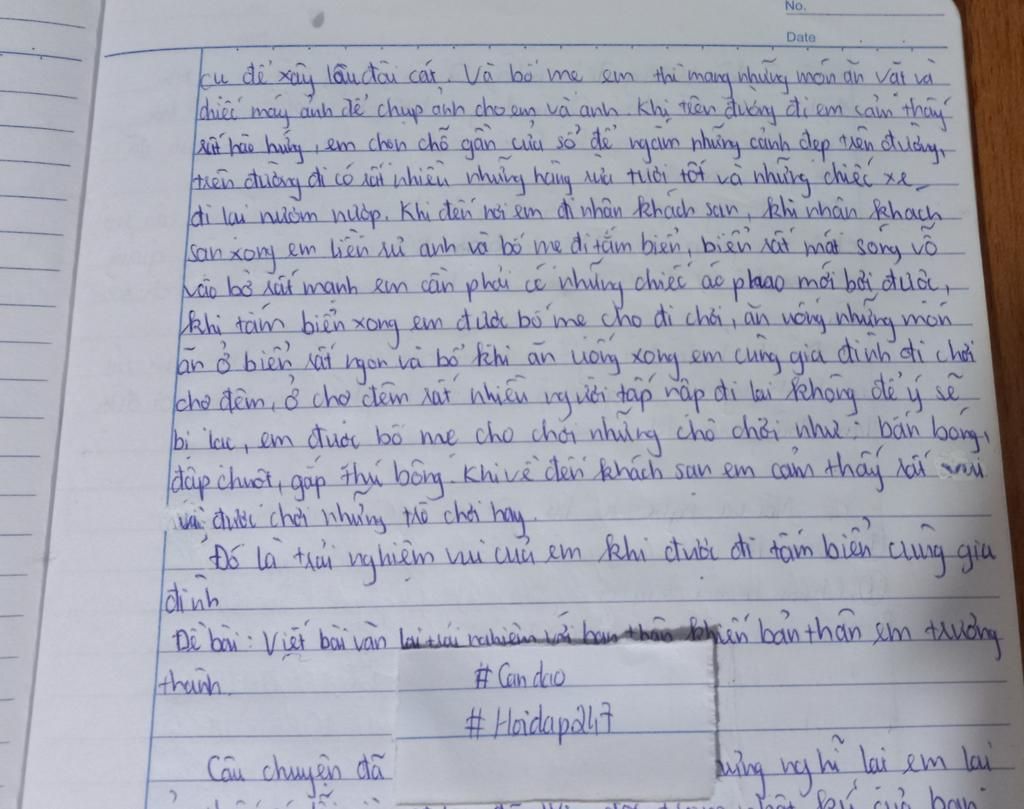 No.
Date
cụ để xây lâu đài cát, Và bố mẹ em thì mang những món ăn vặt và
chiếc máy ảnh để chụp ảnh cho em và anh. Khi trên đường đi em cảm thấy
rất hào hứng, em chọn chỗ gần cửa sổ để ngắm những cảnh đẹp trên đường,
trên đường đi có rất nhiều những hàng tươi tốt và những chiếc xe
đi lại nườm nượp. Khi đến nơi em đi nhân khách sạn, khi nhân khách
sạn xong em liền anh và bố mẹ đi tắm biển, biển rất mát sóng vỗ
vào bờ rất mạnh em cần phải có những chiếc áo phao mới bơi được,
khi tắm biển xong em được bố mẹ cho đi chơi, ăn uống những món
ăn ở biển rất ngon và bổ khi ăn uống xong em cùng gia đình đi chơi
chợ đêm, ở chợ đêm rất nhiều người tấp nập đi lại không để ý sẽ
bị lạc, em được bố mẹ cho chơi những chò chơi như: bắn bóng,
đập chuột, gắp thú bông. Khi về đến khách sạn em cảm thấy rất vui
vì được chơi những trò chơi hay.
Đó là trải nghiệm vui của em khi được đi tắm biển cùng gia
đình
Đề bài: Viết bài văn lại trải nghiệm với bản thân khiến bản thân em trưởng
thành.
#Can dao
#Hoidap247
Câu chuyện đã nghĩ lại em lại